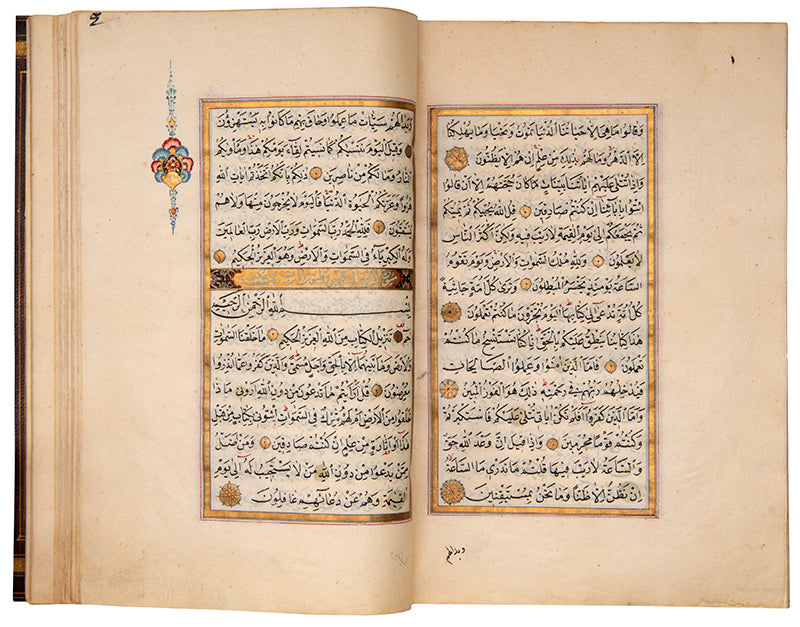 وَقَالُوا مَا هِيَ اِلَّا حَيَاتُنَا الدُّنْيَا نَمُوتُ وَنَحْيَا وَمَا يُهْلِكُنَا
اِلَّا الدَّهْرُ وَمَا لَهُمْ بِذٰلِكَ مِنْ عِلْمٍ اِنْ هُمْ اِلَّا يَظُنُّونَ
وَاِذَا تُتْلٰى عَلَيْهِمْ اٰيَاتُنَا بَيِّنَاتٍ مَا كَانَ حُجَّتَهُمْ اِلَّا اَنْ قَالُوا
ائْتُوا بِاٰبَائِنَا اِنْ كُنْتُمْ صَادِقِينَ قُلِ اللّٰهُ يُحْيِيكُمْ ثُمَّ يُمِيتُكُمْ
ثُمَّ يَجْمَعُكُمْ اِلٰى يَوْمِ الْقِيٰمَةِ لَا رَيْبَ فِيهِ وَلٰكِنَّ اَكْثَرَ النَّاسِ
لَا يَعْلَمُونَ وَلِلّٰهِ مُلْكُ السَّمٰوَاتِ وَالْاَرْضِ وَيَوْمَ تَقُومُ
السَّاعَةُ يَوْمَئِذٍ يَخْسَرُ الْمُبْطِلُونَ وَتَرٰى كُلَّ اُمَّةٍ جَاثِيَةً
كُلُّ اُمَّةٍ تُدْعٰى اِلٰى كِتَابِهَا اَلْيَوْمَ تُجْزَوْنَ مَا كُنْتُمْ تَعْمَلُونَ
هٰذَا كِتَابُنَا يَنْطِقُ عَلَيْكُمْ بِالْحَقِّ اِنَّا كُنَّا نَسْتَنْسِخُ مَا كُنْتُمْ
تَعْمَلُونَ فَاَمَّا الَّذِينَ اٰمَنُوا وَعَمِلُوا الصَّالِحَاتِ
فَيُدْخِلُهُمْ رَبُّهُمْ فِي رَحْمَتِهِ ذٰلِكَ هُوَ الْفَوْزُ الْمُبِينُ
وَاَمَّا الَّذِينَ كَفَرُوا اَفَلَمْ تَكُنْ اٰيَاتِي تُتْلٰى عَلَيْكُمْ فَاسْتَكْبَرْتُمْ
وَكُنْتُمْ قَوْمًا مُجْرِمِينَ وَاِذَا قِيلَ اِنَّ وَعْدَ اللّٰهِ حَقٌّ
وَالسَّاعَةُ لَا رَيْبَ فِيهَا قُلْتُمْ مَا نَدْرِي مَا السَّاعَةُ
اِنْ نَظُنُّ اِلَّا ظَنًّا وَمَا نَحْنُ بِمُسْتَيْقِنِينَ
وبدا لهم
وَبَدَا لَهُمْ سَيِّئَاتُ مَا عَمِلُوا وَحَاقَ بِهِمْ مَا كَانُوا بِهِ يَسْتَهْزِؤُنَ
وَقِيلَ الْيَوْمَ نَنْسٰيكُمْ كَمَا نَسِيتُمْ لِقَاءَ يَوْمِكُمْ هٰذَا وَمَأْوٰيكُمُ
النَّارُ وَمَا لَكُمْ مِنْ نَاصِرِينَ ذٰلِكُمْ بِاَنَّكُمُ اتَّخَذْتُمْ اٰيَاتِ اللّٰهِ
هُزُوًا وَغَرَّتْكُمُ الْحَيٰوةُ الدُّنْيَا فَالْيَوْمَ لَا يُخْرَجُونَ مِنْهَا وَلَا هُمْ
يُسْتَعْتَبُونَ فَلِلّٰهِ الْحَمْدُ رَبِّ السَّمٰوَاتِ وَرَبِّ الْاَرْضِ رَبِّ الْعَالَمِينَ
وَلَهُ الْكِبْرِيَاءُ فِي السَّمٰوَاتِ وَالْاَرْضِ وَهُوَ الْعَزِيزُ الْحَكِيمُ
بِسْمِ اللّٰهِ الرَّحْمٰنِ الرَّحِيمِ
حٰمٓ تَنْزِيلُ الْكِتَابِ مِنَ اللّٰهِ الْعَزِيزِ الْحَكِيمِ مَا خَلَقْنَا السَّمٰوَاتِ
وَالْاَرْضَ وَمَا بَيْنَهُمَا اِلَّا بِالْحَقِّ وَاَجَلٍ مُسَمًّى وَالَّذِينَ كَفَرُوا عَمَّا اُنْذِرُوا
مُعْرِضُونَ قُلْ اَرَاَيْتُمْ مَا تَدْعُونَ مِنْ دُونِ اللّٰهِ اَرُونِي مَاذَا
خَلَقُوا مِنَ الْاَرْضِ اَمْ لَهُمْ شِرْكٌ فِي السَّمٰوَاتِ ائْتُونِي بِكِتَابٍ مِنْ قَبْلِ
هٰذَا اَوْ اَثَارَةٍ مِنْ عِلْمٍ اِنْ كُنْتُمْ صَادِقِينَ وَمَنْ اَضَلُّ
مِمَّنْ يَدْعُوا مِنْ دُونِ اللّٰهِ مَنْ لَا يَسْتَجِيبُ لَهُ اِلٰى يَوْمِ
الْقِيٰمَةِ وَهُمْ عَنْ دُعَائِهِمْ غَافِلُونَ